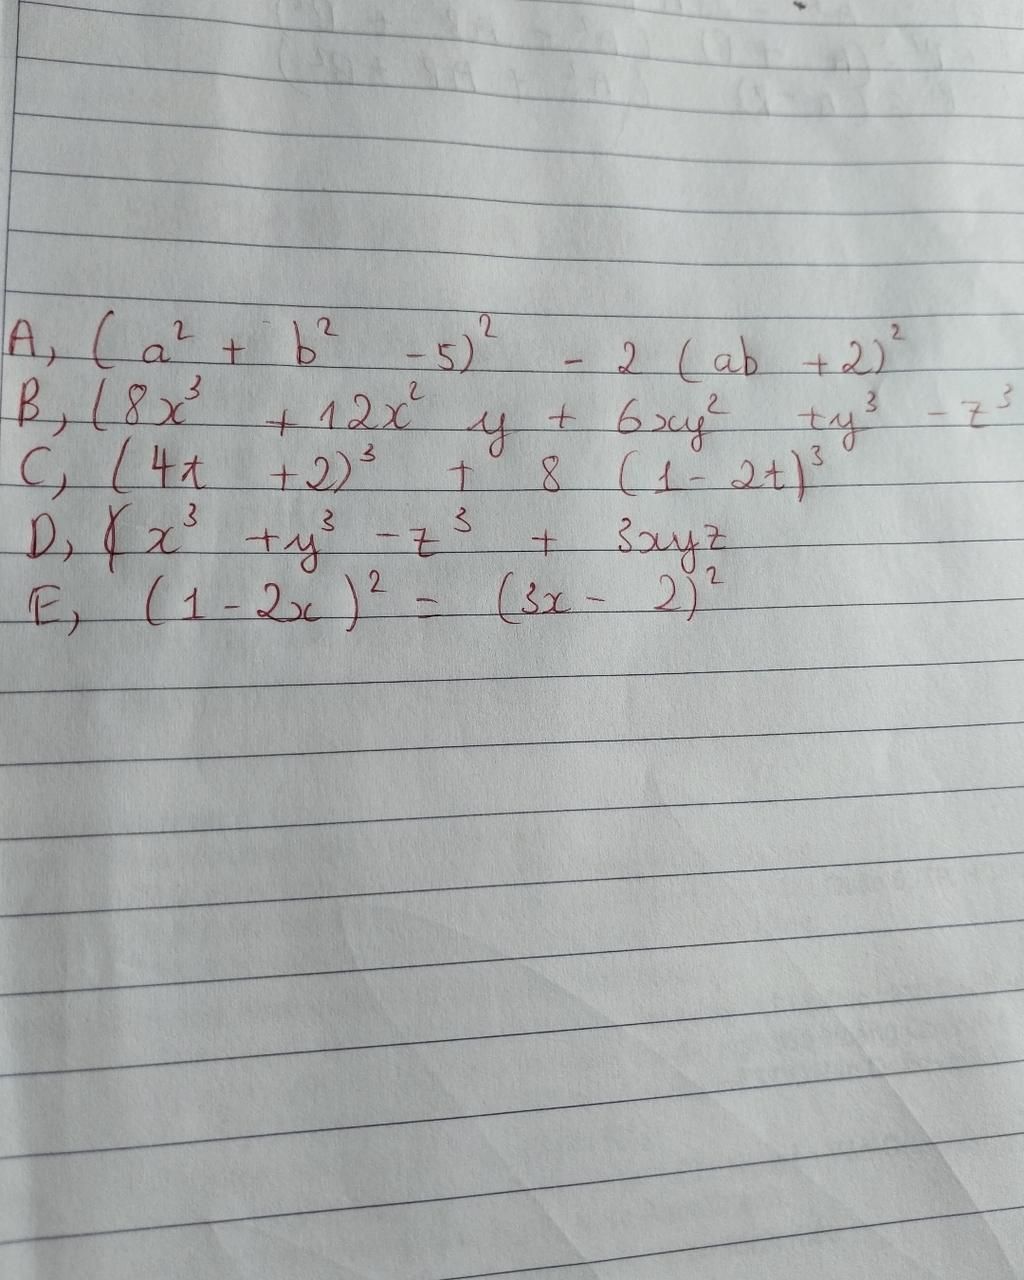 A, (a² + b² - 5)² - 2 (ab + 2)²
B, (8x³ + 12x² y + 6xy² + y³ - z³
C, (4t + 2)³ + 8 (1 - 2t)³
D, x³ + y³ - z³ + 3xyz
E, (1 - 2x)² = (3x - 2)²